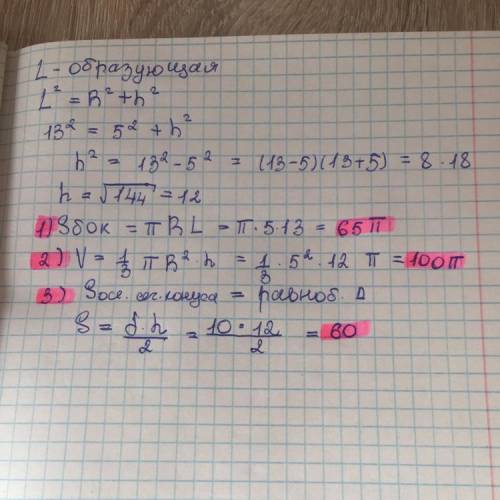 L - образующая
L² = R² + h²
13² = 5² + h²
h² = 13² - 5² = (13-5)(13+5) = 8 · 18
h = √144 = 12
1) Sбок = π R L = π · 5 · 13 = 65 π
2) V = 1/3 π R² · h = 1/3 · 5² · 12 π = 100π
3) Sосе. сег. конуса = равноб. Δ
S = δ · h / 2 = 10 · 12 / 2 = 60